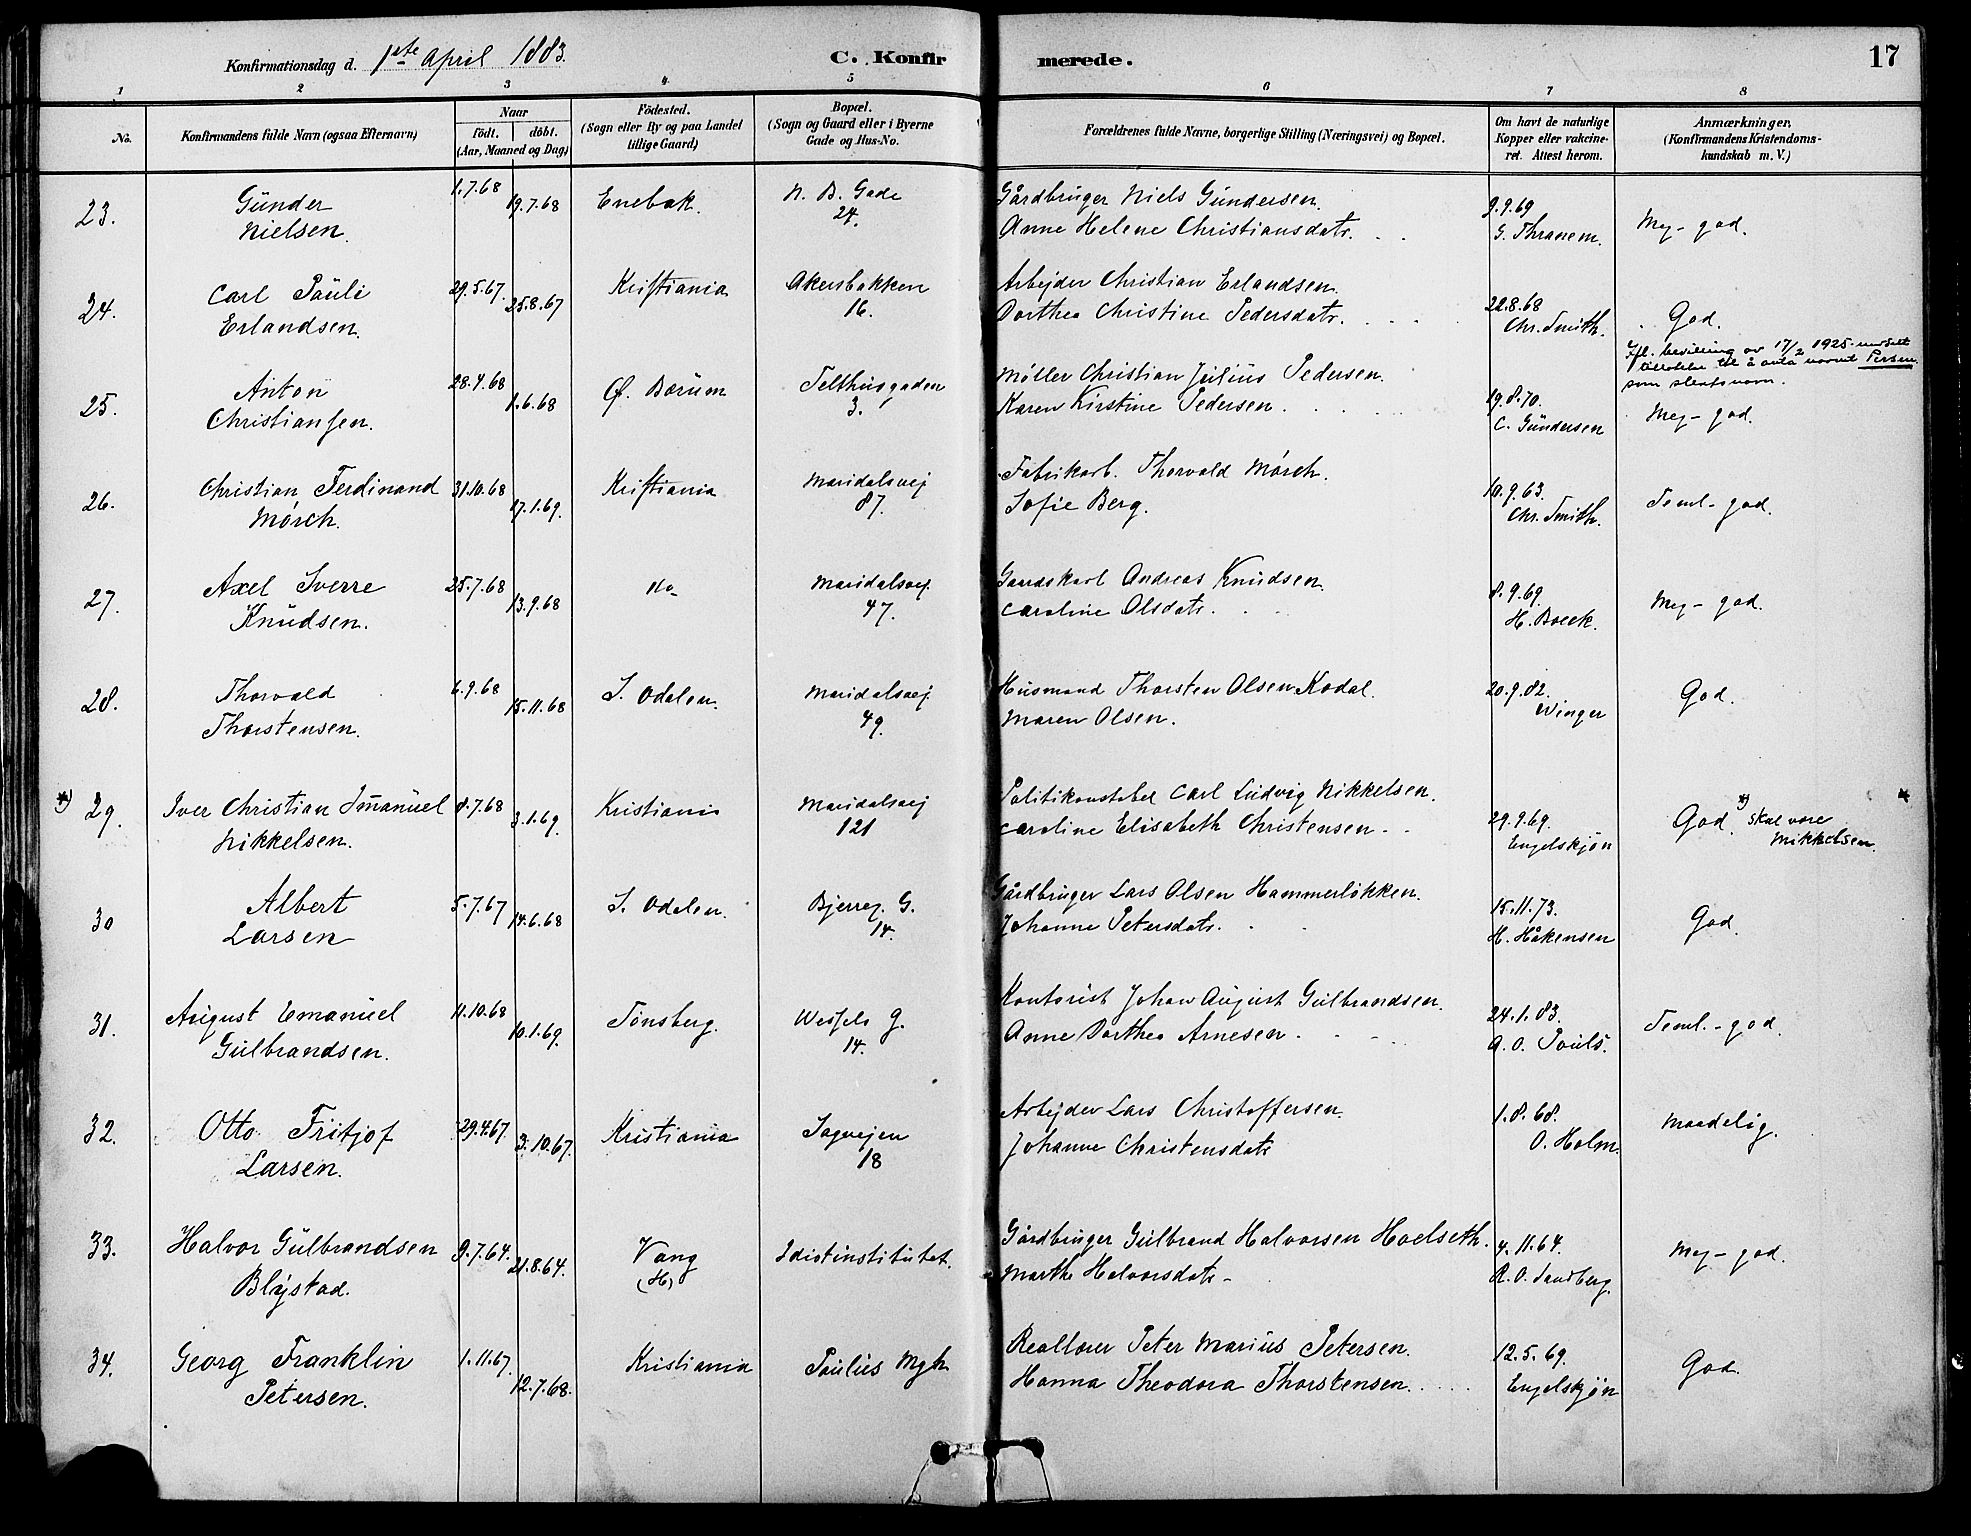 Konfirmationsdag d. 1ste April 1883. C. Konfirmerede. 17
1 2 3 4 5 6 7 8
No. Konfirmandens fulde Navn (ogsaa Efternavn) Naar födt. döbt. (Aar, Maaned og Dag) Födested. (Sogn eller By og paa Landet tillige Gaard) Bopæl. (Sogn og Gaard eller i Byerne Gade og Hus-No. Forældrenes fulde Navne, borgerlige Stilling (Næringsvei) og Bopæl. Om havt de naturlige Kopper eller vakcineret. Attest herom. Anmærkninger. (Konfirmandens Kristendomskundskab m. V.)
23. Günder 1.7.68 19.7.68 Enebak. N. B. Gade Gårdbruger Niels Gundersen. 9.9.69 Meg-god.
Nielsen. 24. Anne Helene Christiansdatr. G. Thranem.
24. Carl Pauli 29.5.67. 25.8.67 Kristiania Akersbakken Arbejder Christian Erlandsen 22.8.68 God.
Erlandsen. 16. Dorthea Christine Pedersdatr. Chr. Smith.
Ifl. bevilling av 17/2 1925 meddelt
tilladelse til å anta navnet Persen
som slektsnavn.
25. Anton 28.4.68 1.6.68 Ø. Bærum Telthusgaden Möller Christian Julius Pedersen. 19.8.70. Meg-god.
Christiansen. 3. Karen Kirstine Pedersen. C. Gündersen
26. Christian Ferdinand 31.10.68 17.1.69. Kristiania Maridalsvej Fabrikarb. Thorvald Mörch. 10.9.63. Teml-god.
Mörch. 87. Sofie Berg. Chr. Smith.
27. Axel Sverre 25.7.68 13.9.68 do Maridalsvej. Gaardskarl Andreas Knudsen. 8.9.69. Meg-god.
Knudsen. 47. Caroline Olsdatr. H. Boeck.
28. Thorvald 6.9.68 15.11.68 S. Odalen. Maridalsvej. Husmand Thorsten Olsen Kodal. 20.9.82. God.
Thorstensen. 49. Maren Olsen. Winger
*) 29. Iver Christian Imanuel 8.7.68 3.1.69. Kristiania Maridalsvej Politikonstabel Carl Ludvig Nikkelsen. 29.9.69. God. *) skal være *
Nikkelsen. 121 Caroline Elisabeth Christensen. Engelskjøn Mikkelsen.
30 Albert 5.7.67 14.6.68 S. Odalen. Bjerreg. G. Gårdbruger Lars Olsen Hammerlökken. 15.11.73. God.
Larsen 14. Johanne Petersdatr. H. Håkensen
31. August Emanuel 11.10.68 10.1.69. Tönsberg. Wessels G. Kontorist Johan August Gulbrandsen. 24.1.83. Teml.-god.
Gulbrandsen. 14. Anne Dorthea Arnesen. A. O. Pouls.
32. Otto Fritjof 29.4.67. 3.10.67. Kristiania Sagvejen Arbejder Lars Christoffersen 1.8.68. Maadelig.
Larsen. 18 Johanne Christensdatr O. Holm.
33. Halvor Gülbrandsen 9.7.64. 21.8.64. Vang Idiotinstitutet. Gårdbruger Gulbrand Halvorsen Hoelseth. 4.11.64. Meg-god.
Blystad. (H) Marthe Halvorsdatr R. O. Sandberg.
34. Georg Franklin 1.11.67. 12.7.68. Kristiania Paulus Mgh. Reallærer Peter Marius Petersen. 12.5.69. God.
Petersen. Hanna Theodora Thorstensen. Engelskjøn